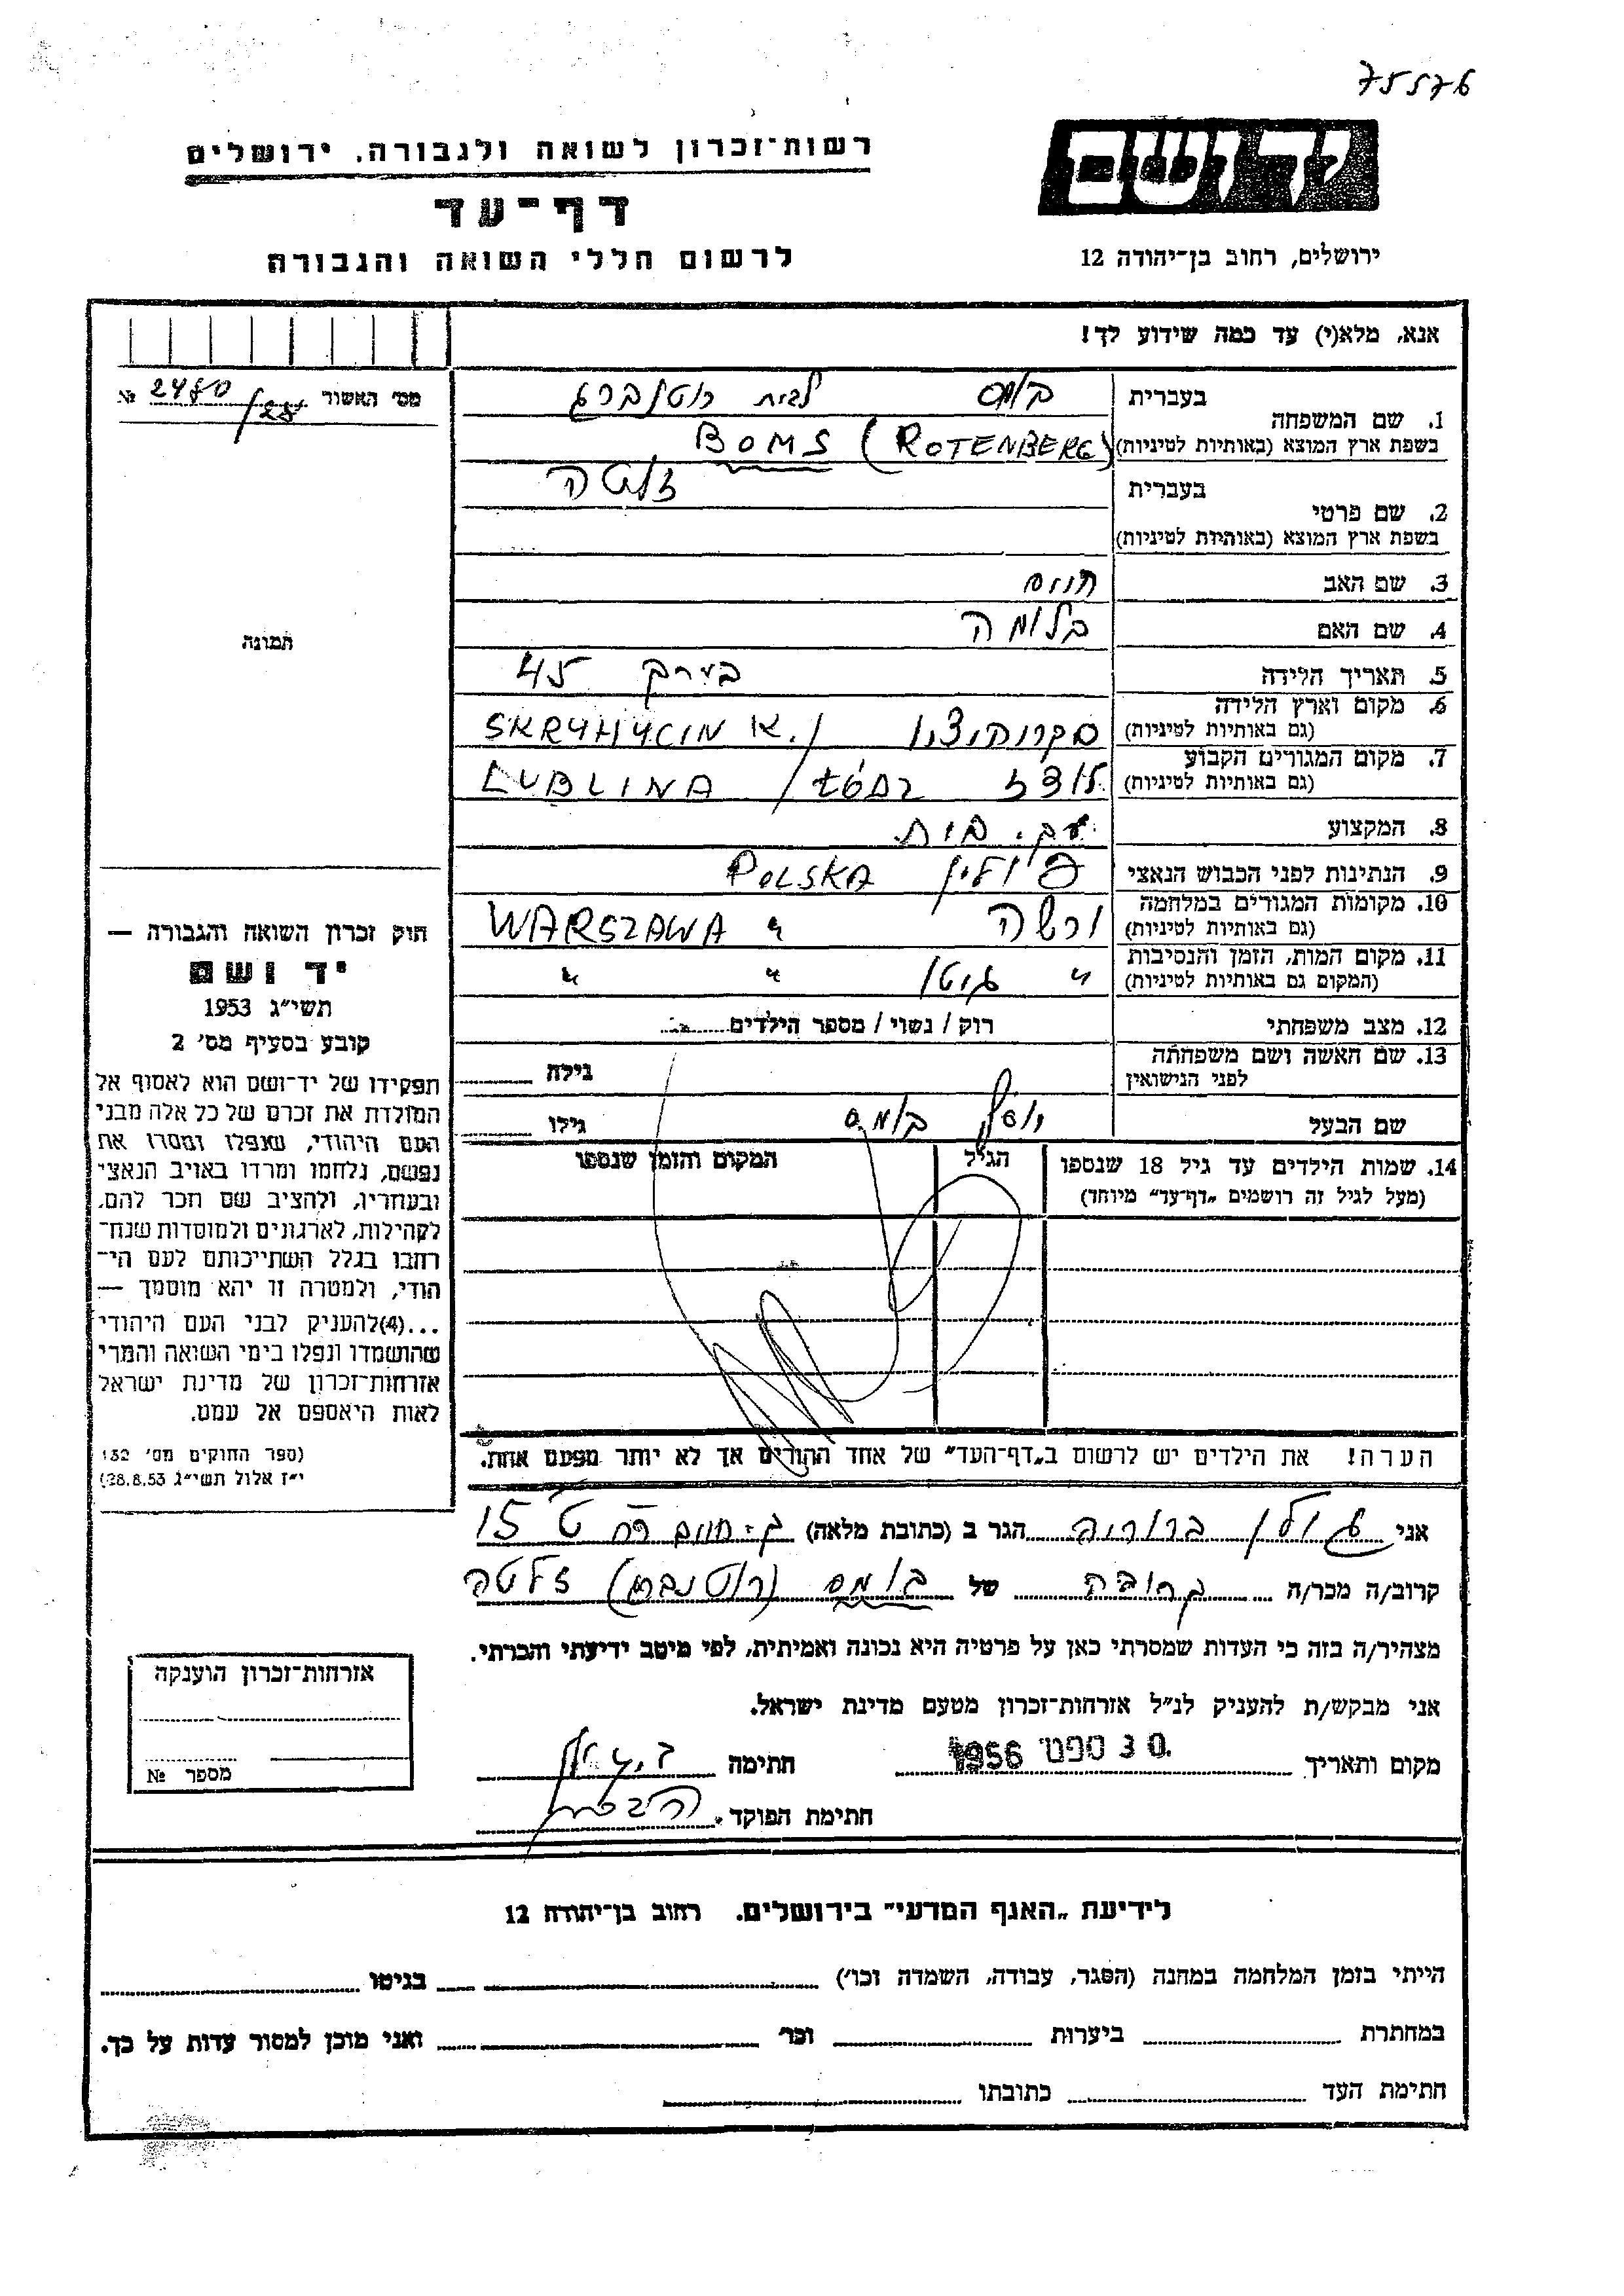 75576
יד ושם
רשות־זכרון לשואה ולגבורה. ירושלים
דף־עד
ירושלים, רחוב בן־יהודה 12
לרשום חללי השואה והגבורה
אנא, מלא(י) עד כמה שידוע לך!
מס׳ האשור № 2480/28
תמונה
חוק זכרון השואה והגבורה —
יד ושם
תשי״ג 1953
קובע בסעיף מס׳ 2
תפקידו של יד־ושם הוא לאסוף אל
המולדת את זכרם של כל אלה מבני
העם היהודי, שנפלו ומסרו את
נפשם, נלחמו ומרדו באויב הנאצי
ובעוזריו, ולהציב שם וזכר להם,
לקהילות, לארגונים ולמוסדות שנח־
רחבו בגלל השתייכותם לעם הי־
הודי, ולמטרה זו יהא מוסמך —
...(4)להעניק לבני העם היהודי
שהושמדו ונפלו בימי השואה והמרי
אזרחות־זכרון של מדינת ישראל
לאות היאספם אל עמם.
(ספר החוקים מס׳ 132
י״ז אלול תשי״ג 28.8.53)
בעברית בומס לבית רוטנברג
1. שם המשפחה
בשפת ארץ המוצא (באותיות לטיניות) BOMS (ROTENBERG)
בעברית זלטה
2. שם פרטי
בשפת ארץ המוצא (באותיות לטיניות)
3. שם האב חיים
4. שם האם בלומה
5. תאריך הלידה בערך 45
6. מקום וארץ הלידה
(גם באותיות לטיניות) סקריהיצין SKRYHYCIN K.
7. מקום המגורים הקבוע
(גם באותיות לטיניות) לודז ŁÓDZ / LUBLINA
8. המקצוע עק. בית
9. הנתינות לפני הכבוש הנאצי פולין POLSKA
10. מקומות המגורים במלחמה
(גם באותיות לטיניות) ורשה " WARSZAWA
11. מקום המות, הזמן והנסיבות
(המקום גם באותיות לטיניות) " גיטו " "
12. מצב משפחתי רוק / נשוי / מספר הילדים
13. שם האשה ושם משפחתה
לפני הנישואין גילה
שם הבעל יוסף בומס גילו
14. שמות הילדים עד גיל 18 שנספו הגיל המקום והזמן שנספו
(מעל לגיל זה רושמים „דף־עד״ מיוחד)
הערה! את הילדים יש לרשום ב„דף־העד״ של אחד ההורים אך לא יותר מפעם אחת.
אני גולן ברוריה הגר ב (כתובת מלאה) ק־ חיים רח ט 15
קרוב/ה מכר/ה קרובה של בומס (רוטנברג) זלטה
מצהיר/ה בזה כי העדות שמסרתי כאן על פרטיה היא נכונה ואמיתית, לפי מיטב ידיעתי והכרתי.
אני מבקש/ת להעניק לנ״ל אזרחות־זכרון מטעם מדינת ישראל.
מקום ותאריך 30 ספט׳ 1956 חתימה
חתימת הפוקד
אזרחות־זכרון הוענקה
מספר №
לידיעת „האגף המדעי״ בירושלים. רחוב בן־יהודה 12
הייתי בזמן המלחמה במחנה (הסגר, עבודה, השמדה וכו׳) בגיטו
במחתרת ביערות וכו׳ ואני מוכן למסור עדות על כך.
חתימת העד כתובתו